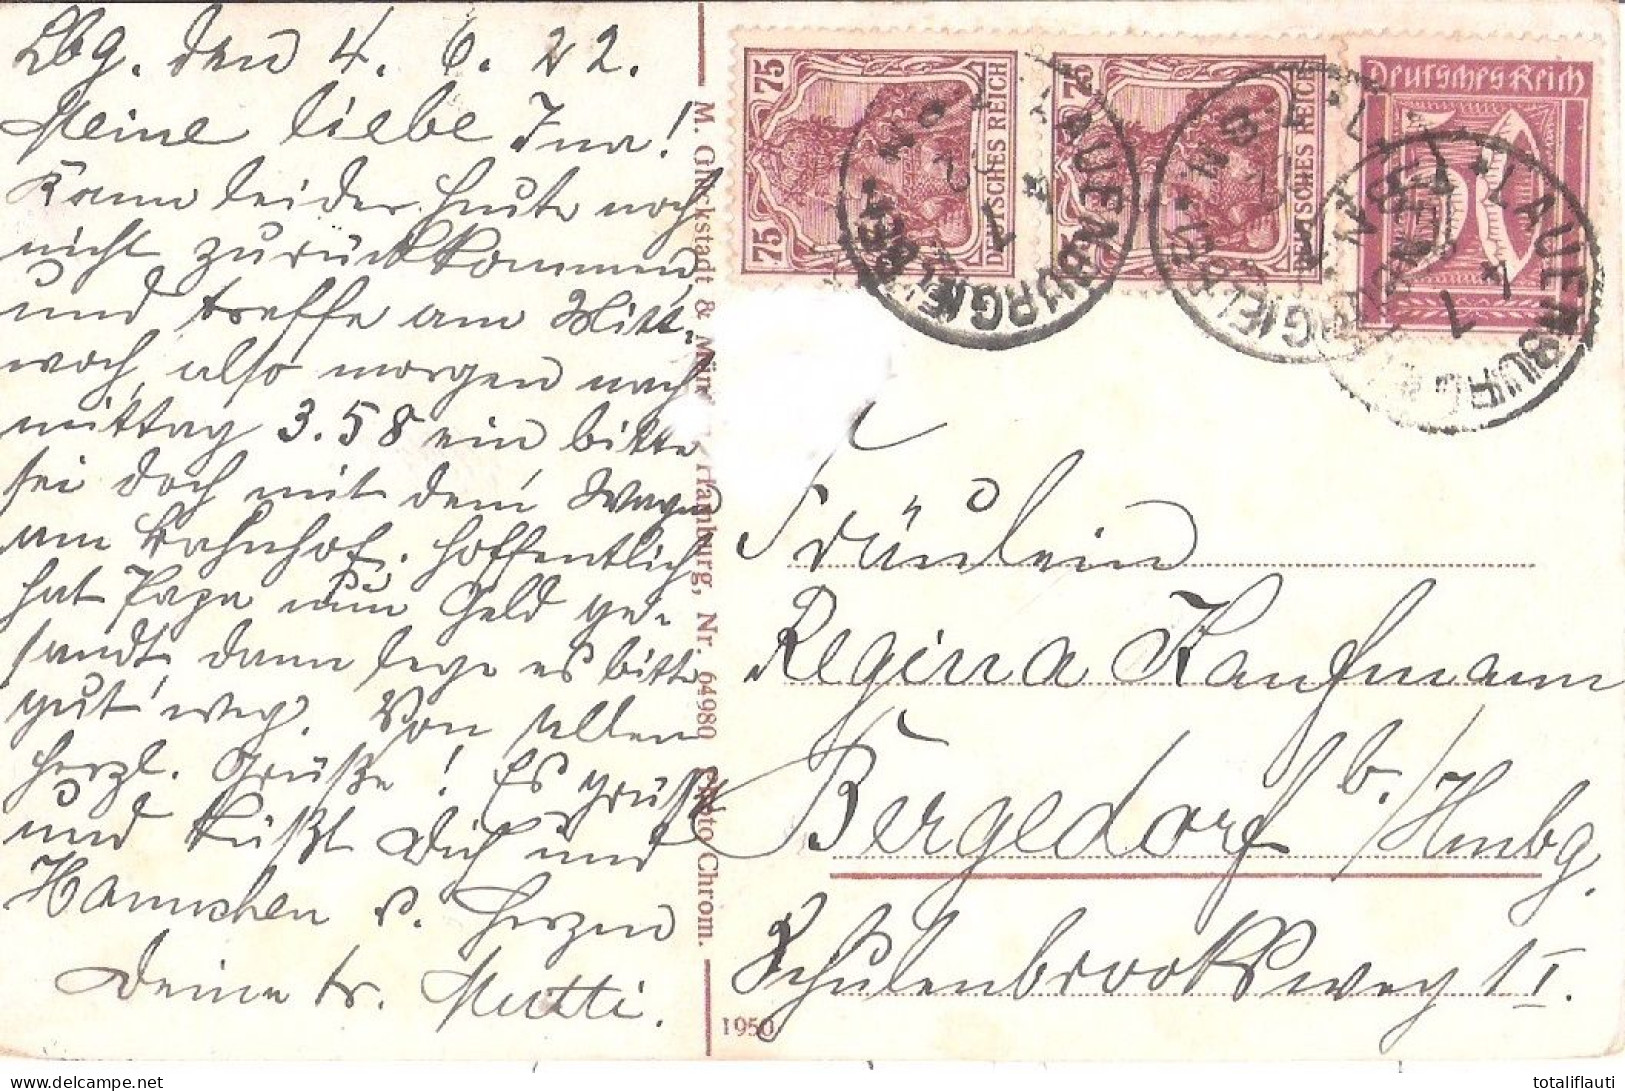 Lbg. den 4. 6. 22.
Meine liebe Ina!
Kann leider heute noch
nicht zurückkommen
und treffe am Mitt-
woch, also morgen nach
mittag 3.58 ein bitte
sei doch mit dem Wagen
am Bahnhof. Hoffentlich
hat Papa nun Geld ge-
sandt, dann lege es bitte
gut weg. Von allen
herzl. Grüße! Es grüßt
und küßt Dich und
Hannchen v. Herzen
Deine tr. Mutti.
M. Glückstadt & Mün Hamburg, Nr. 64980 Photo Chrom.
1950
75 75
DEUTSCHES REICH
75
DEUTSCHES REICH
Deutsches Reich
50
LAUENBURG (ELBE)
LAUENBURG (ELBE)
Fräulein
Regina Kaufmann
Bergedorf b./Hmbg.
Schulenbrooksweg 1 I.
totaliflauti